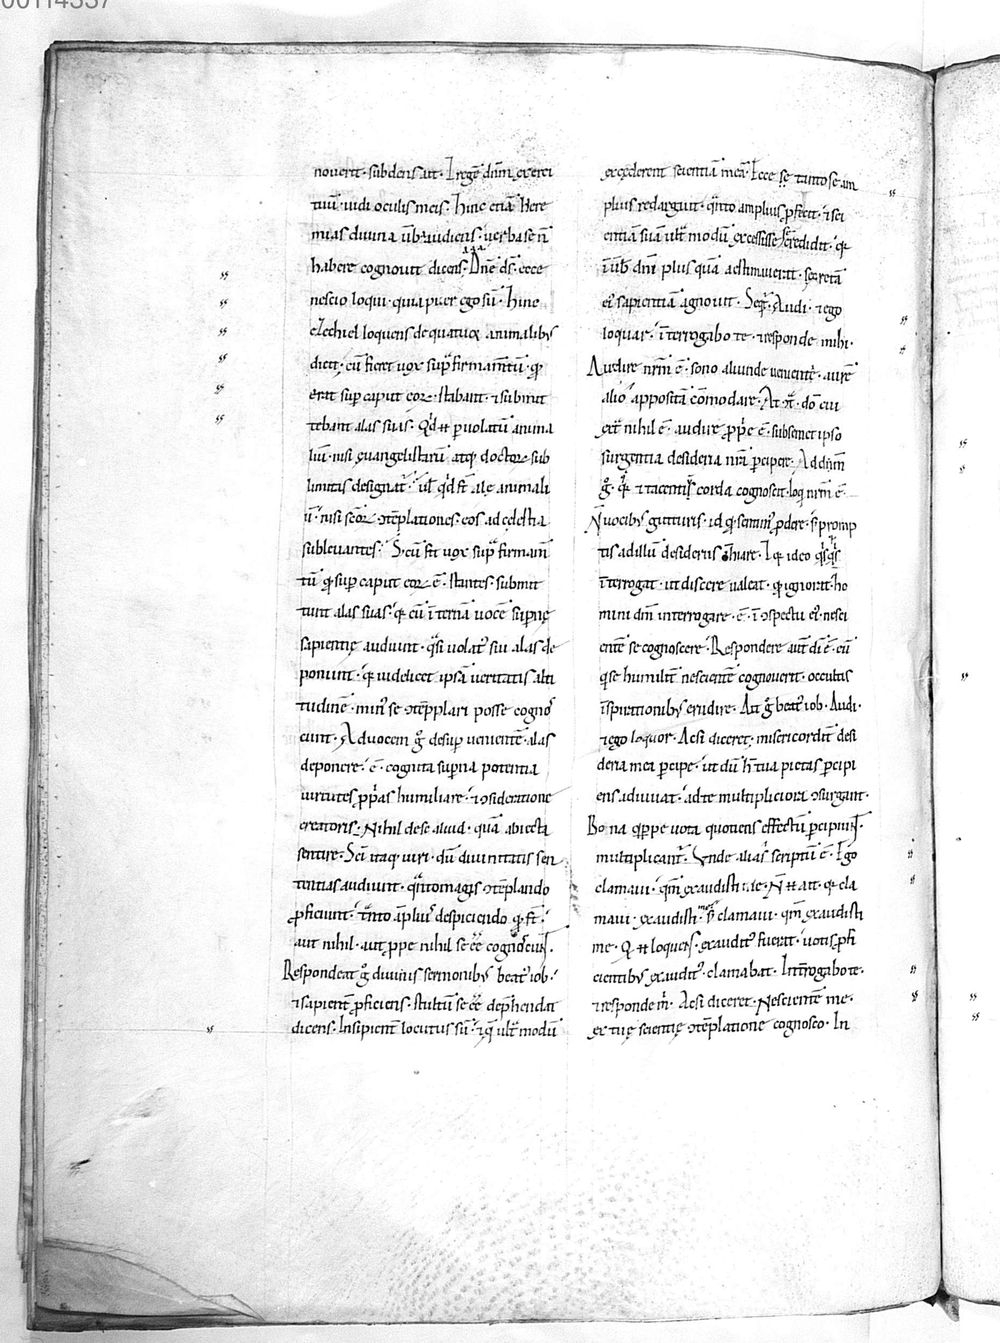 00114337
nouerit· subdens ait· Et regē dnm̄ exerci
tuū· uidi oculis meis· Hinc etiā Iere
mias diuina ūba audiens· uerba se ñ
habere cognouit dicens· AAA Dñe d̄s· ecce
nescio loqui· quia puer ego sū· Hinc
ezechiel loquens de quatuor animalibꝯ
dicit· cū fieret uox supͣ firmam̄tū· qđ
erat sup̱ caput eoꝝ· stabant· ⁊ submit
tebant alas suas· Qͥd ꝑ uolatū anima
liū· nisi euangelistarū atqꝫ doctoꝝ sub
limitas designat̉· uł qͥd s̄t alę animali
ū· nisi sc̄oꝝ ↄtēplationes· eos ad cęlestia
subleuantes· S; cū fit uox supͣ firmam̄
tū qđ sup̱ caput eoꝝ ē· stantes· submit
tunt alas suas· qꝛ cū īternā uocē supernę
sapientię audiunt· qͣsi uolatꝯ sui alas de
ponunt· qꝛ uidelicet ipsā ueritatis alti
tudinē· minꝯ se ↄtēplari posse cognos
cunt· Ad uocem g̊ desup̱ uenientē· alas
deponere· ē· cognita superna potentia
uirtutes ꝓp̄as humiliare· ⁊ ↄsideratione
creatoris· Nihil de se aliud· quā abiecta
sentire· Sc̄i itaqꝫ uiri· dū diuinitatis sen
tentias audiunt· qͣnto magis ↄtēplando
ꝓficiunt· tͣnto āplius despiciendo qđ s̄t·
aut nihil· aut ꝓpe nihil se ēē cognoscunt·
Respondeat g̊ diuinis sermonibꝯ beatꝯ iob·
⁊ sapient̄ ꝓficiens· stultū se ēē dep̄hendat
dicens· Insipient̄ locutus sū· ⁊ quę ult̄ modū
excederent scientiā meā· Ecce se tanto se am
plius redarguit· qͣnto amplius ꝓfecit· ⁊ sci
entiā suā ult̄ modū excessisse se credidit· qꝛ
ī ūb dn̄i plus quā aestimauerat· secretā
eiꝯ sapientiā agnouit· Seqͥt̉· Audi· ⁊ ego
loquar· īterrogabo te· ⁊ responde mihi·
Audire nrm̄ ē· sono aliunde uenienti· aurē
alio appositā cōmodare· At ū· dō cui
extͣ nihil ē· audire ꝓp̄e ē· sub semet ipso
surgentia desideria nrā percipere· Ad dn̄m
g̊· qͥ ⁊ tacentiū corda cognoscit· loqͥ nrm̄ ē·
Ñ uocibꝯ gutturis· id qđ sentimꝯ ꝓdere· s; promp
tis ad illū desideriis hiare· Et qꝛ ideo qͥsqͥs
īterrogat· ut discere ualeat· qđ ignorat· ho
mini dm̄ interrogare· ē· ī ↄspectu eiꝯ· nesci
entē se cognoscere· Respondere aut̄ di ē· eū
qͥ se humilit̄ nescientē cognouerit· occultis
īspirationibꝯ erudire· Ait g̊ beatꝯ iob· Audi·
⁊ ego loquor· Acsi diceret· misericordit̄ desi
deria mea percipe· ut dū h̄ tua pietas percipi
ens adiuuat· ad te multipliciora ↄsurgant·
Bona qͥppe uota quotiens effectū percipiunt·
multiplicant̉· Unde alias scriptū ē· Ego
clamaui· qm̄ exaudisti me· N̄ ait· qꝛ cla
maui· exaudisti me· s; clamaui· qm̄ exaudisti
me· Qͥ loquens· exauditꝯ fuerat· uotis ꝓfi
cientibꝯ exauditꝯ· clamabat· Interrogabo te·
⁊ responde m̄· Acsi diceret· Nescientē me·
ex tuę scientię ↄtēplatione cognosco· In